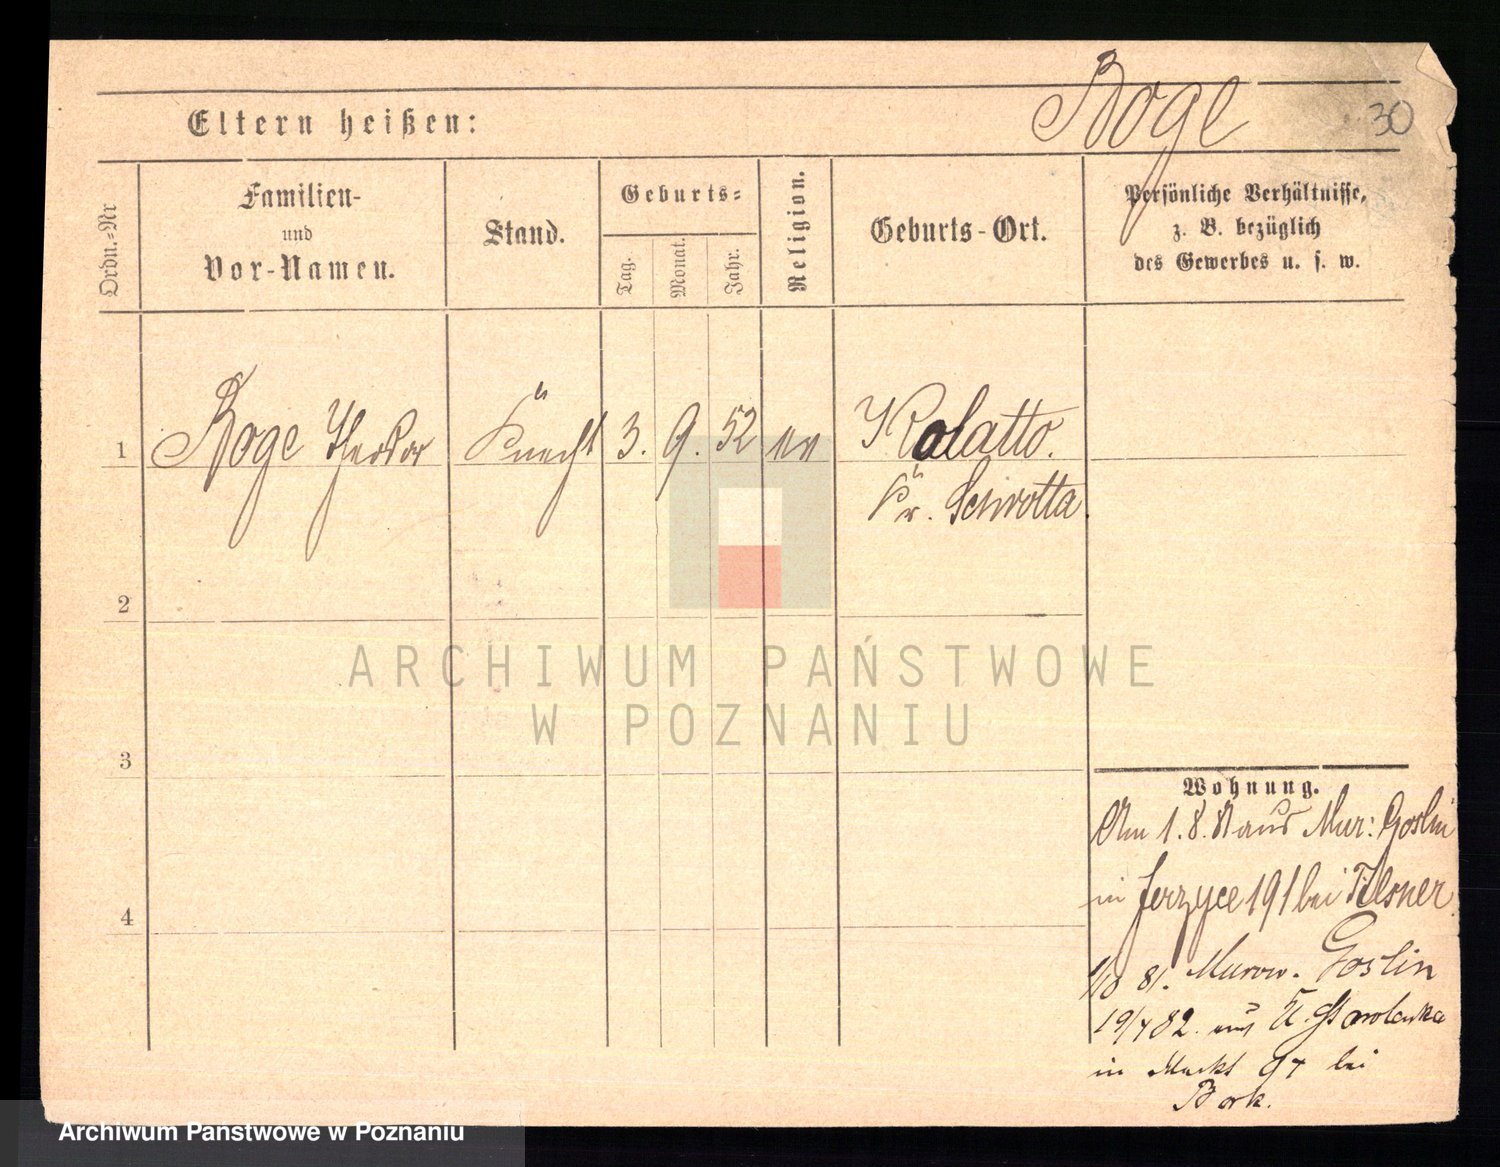 Boge
30
Eltern heißen:
Ordn.=Nr
Familien-
und
Vor-Namen.
Stand.
Geburts=
Tag.
Monat.
Jahr.
Religion.
Geburts-Ort.
Persönliche Verhältnisse,
z. B. bezüglich
des Gewerbes u. s. w.
1 Boge Theodor Knecht 3. 9. 52 ev Kolatto.
Kr. Schrotta.
2
3
4
ARCHIWUM PAŃSTWOWE
W POZNANIU
Wohnung.
Am 1. 8. 81 aus Mur: Goslin
in Jerzyce 191 bei Tilsner
1/10 81. Murow. Goslin
19/4 82. aus
in Markt 97 bei
Bork.
Archiwum Państwowe w Poznaniu